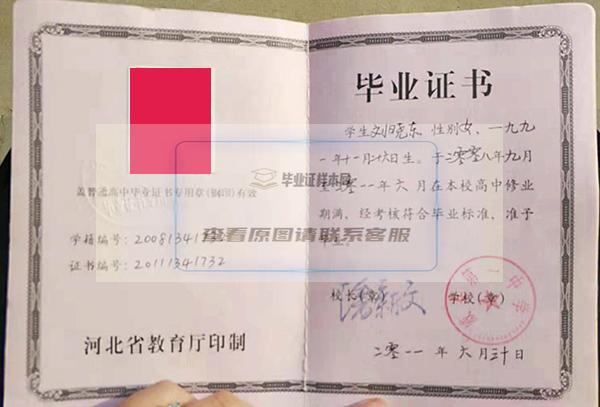 盖普通高中毕业证书专用章(钢印)有效
学籍编号：20081341732
证书编号：20111341732
河北省教育厅印制
毕业证书
学生刘晓东，性别女，一九九
一年十一月二十六日生。于二零零八年九月
至二零一一年六月在本校高中修业
期满，经考核符合毕业标准，准予
毕业。
校长(章)
学校(章)
二零一一年六月三十日
毕业证样本网
查看原图请联系客服
中学